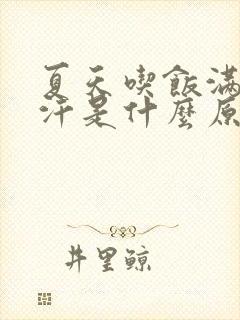 夏天喫飯滿
汗是什麼原
井里鯨